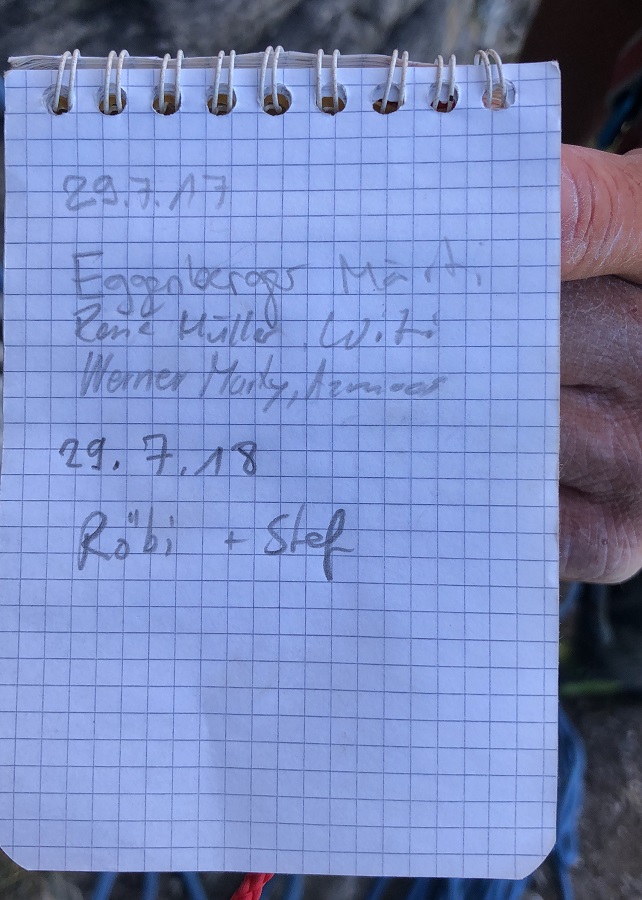 29.7.17
Eggenberger Märti
René Müller Witi
Werner Marty, Azmoos
29.7.18
Röbi + Stef